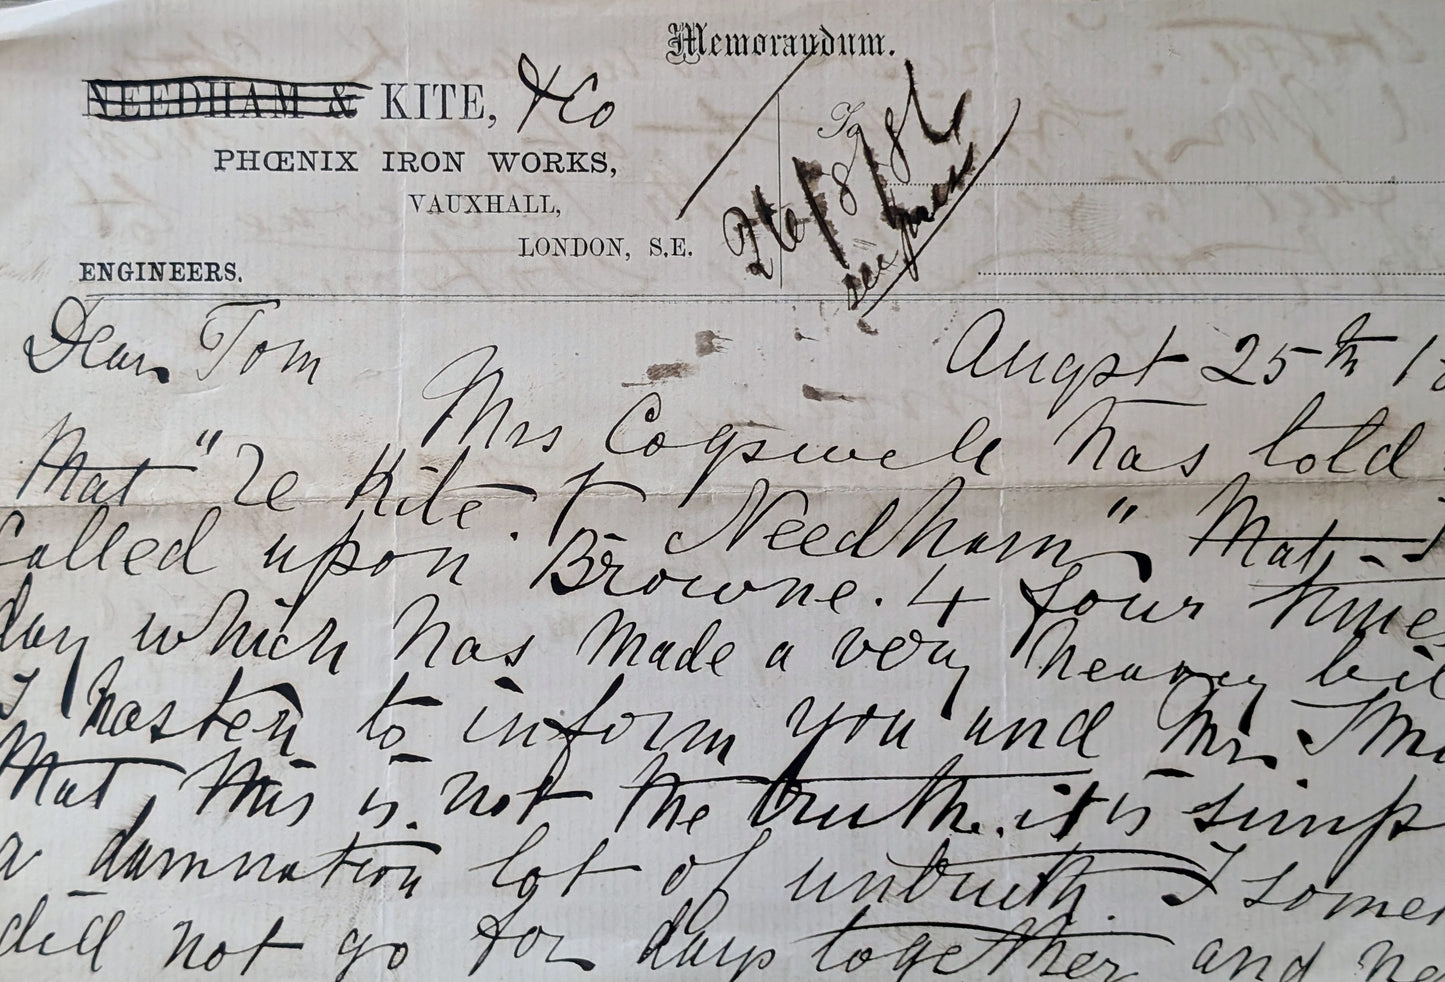 Memorandum.
NEEDHAM & KITE, & Co
PHŒNIX IRON WORKS,
VAUXHALL,
LONDON, S.E.
ENGINEERS.
To
26/8/8
see
Dear Tom
Augst 25th 18
Mrs Cogswell has told
that "re Kite & Needham" that I
Called upon Browne. 4 four times
day which has made a very heavy bil
I hasten to inform you and Mr
that this is not the truth. it is simp
a damnation lot of untruth. I somet
did not go for days together and ne